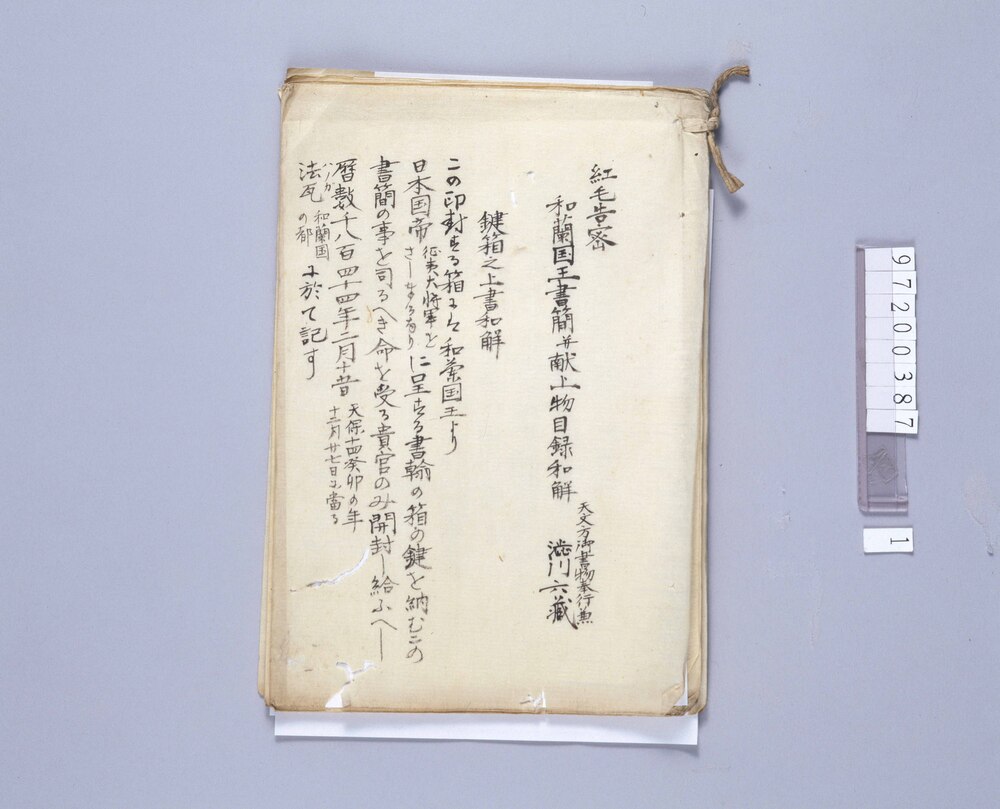 紅毛告密
和蘭国王書簡并献上物目録和解
天文方御書物奉行兼
澁川六蔵
鍵箱之上書和解
この印封する箱には和蘭国王より
日本国帝
征夷大将軍を
さし奉る
に呈する書翰の箱の鍵を納むこの
書簡の事を司るへき命を受る貴官のみ開封し給ふへし
暦数千八百四十四年二月十五日
天保十四癸卯の年
十二月廿七日に當る
法瓦
ハーガ
和蘭国
の都
に於て記す
97200387
1